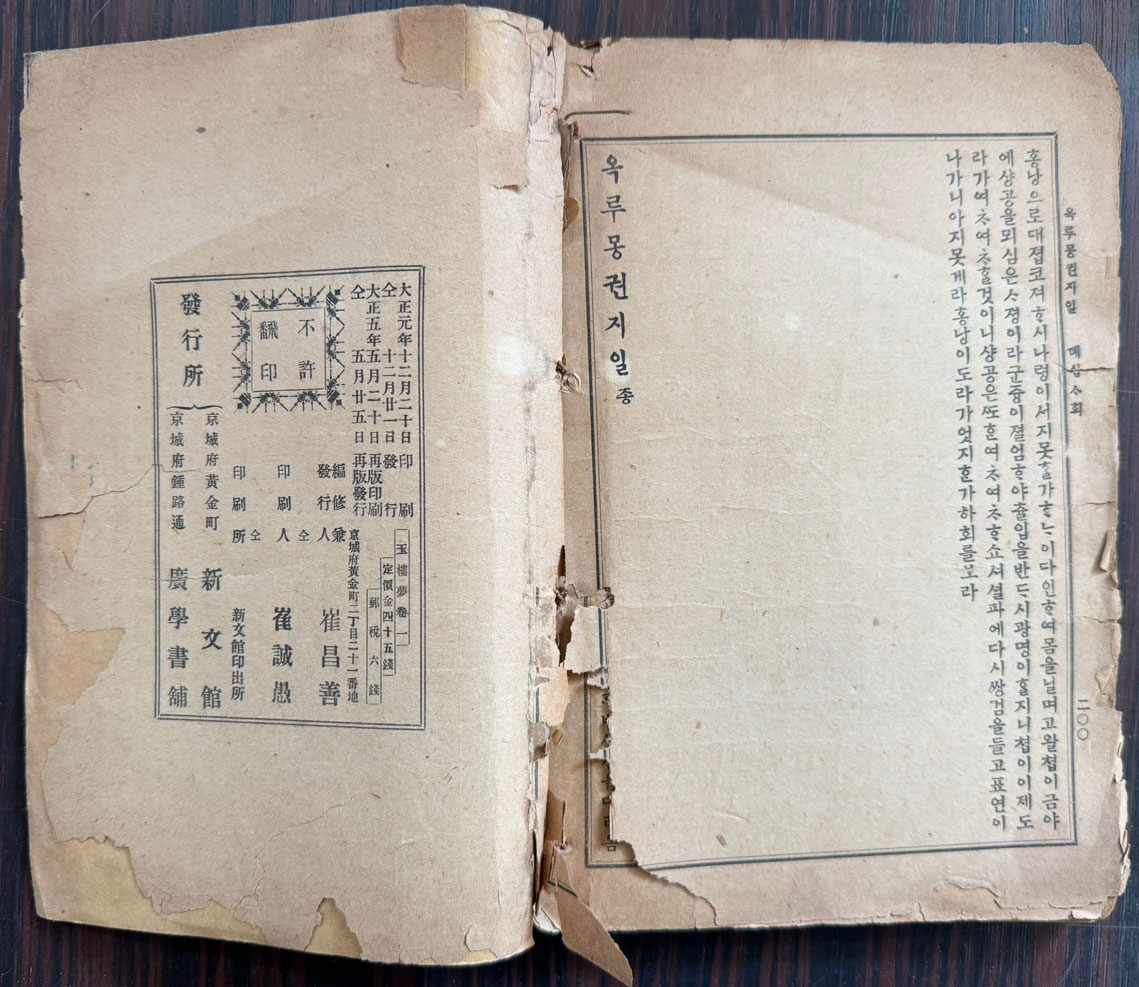 옥루몽권지일 뎨십ᄉ회 二〇〇
홍낭으로대졉코져ᄒ시나령이서지못ᄒᆯ가ᄒᄂ이다인ᄒ여몸을닐며고왈쳡이금야
에샹공을뫼심은ᄉ졍이라군즁이졀엄ᄒ야츌입을반ᄃ시광명이ᄒᆯ지니쳡이이제도
라가여ᄎ여ᄎᄒᆯ것이니샹공은ᄯᅩᄒᆫ여ᄎ여ᄎᄒ쇼셔셜파에다시쌍검을들고표연이
나가니아지못게라홍낭이도라가엇지ᄒᆫ가하회를보라
옥루몽권지일 종
大正元年十二月二十日 印刷
仝 十二月廿一日 發行
大正五年五月二十日 再版印刷
仝 五月廿五日 再版發行
玉樓夢卷一
定價金四十五錢
郵稅六錢
不許
飜印
京城府黃金町二丁目二十一番地
編修兼
發行人 崔昌善
仝
印刷人 崔誠愚
仝
印刷所 新文館印出所
發行所
京城府黃金町 新文館
京城府鍾路通 廣學書舖